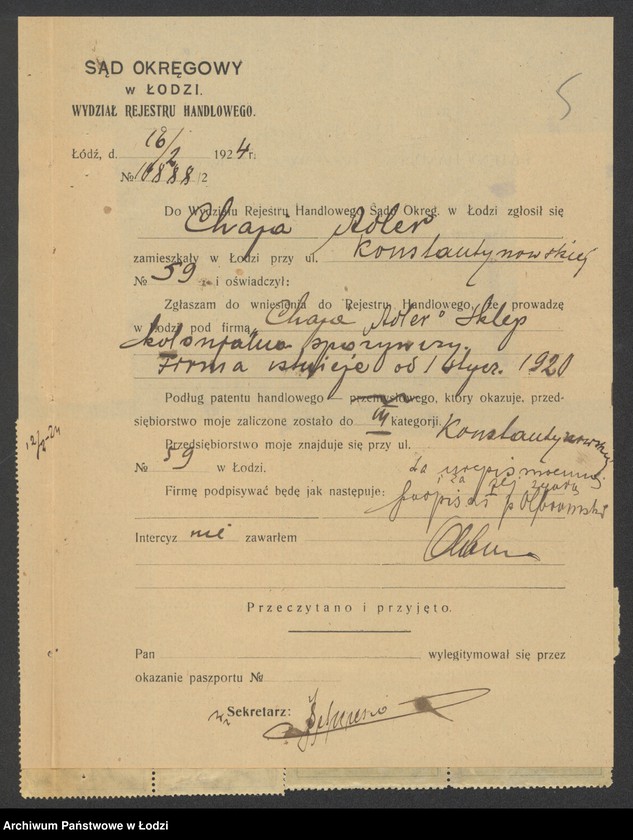 SĄD OKRĘGOWY
w ŁODZI.
WYDZIAŁ REJESTRU HANDLOWEGO.
5
Łódź, d. 16/2 1924 r.
№ 10888/2
Do Wydziału Rejestru Handlowego Sądu Okręg. w Łodzi zgłosił się
Chaja Adler
zamieszkały w Łodzi przy ul. Konstantynowskiej
№ 59 i oświadczył:
Zgłaszam do wniesienia do Rejestru Handlowego, że prowadzę
w Łodzi pod firmą „Chaja Adler" Sklep
kolonjalno spożywczy.
Firma istnieje od 1 stycz. 1920
Podług patentu handlowego — przemysłowego, który okazuje, przed-
siębiorstwo moje zaliczone zostało do III kategorji.
Przedsiębiorstwo moje znajduje się przy ul. Konstantynowskiej
№ 59 w Łodzi.
za niepiśmienną
i za jej
Firmę podpisywać będę jak następuje: podpisał
Intercyz nie zawarłem
Przeczytano i przyjęto.
Pan wylegitymował się przez
okazanie paszportu №
Sekretarz:
Archiwum Państwowe w Łodzi